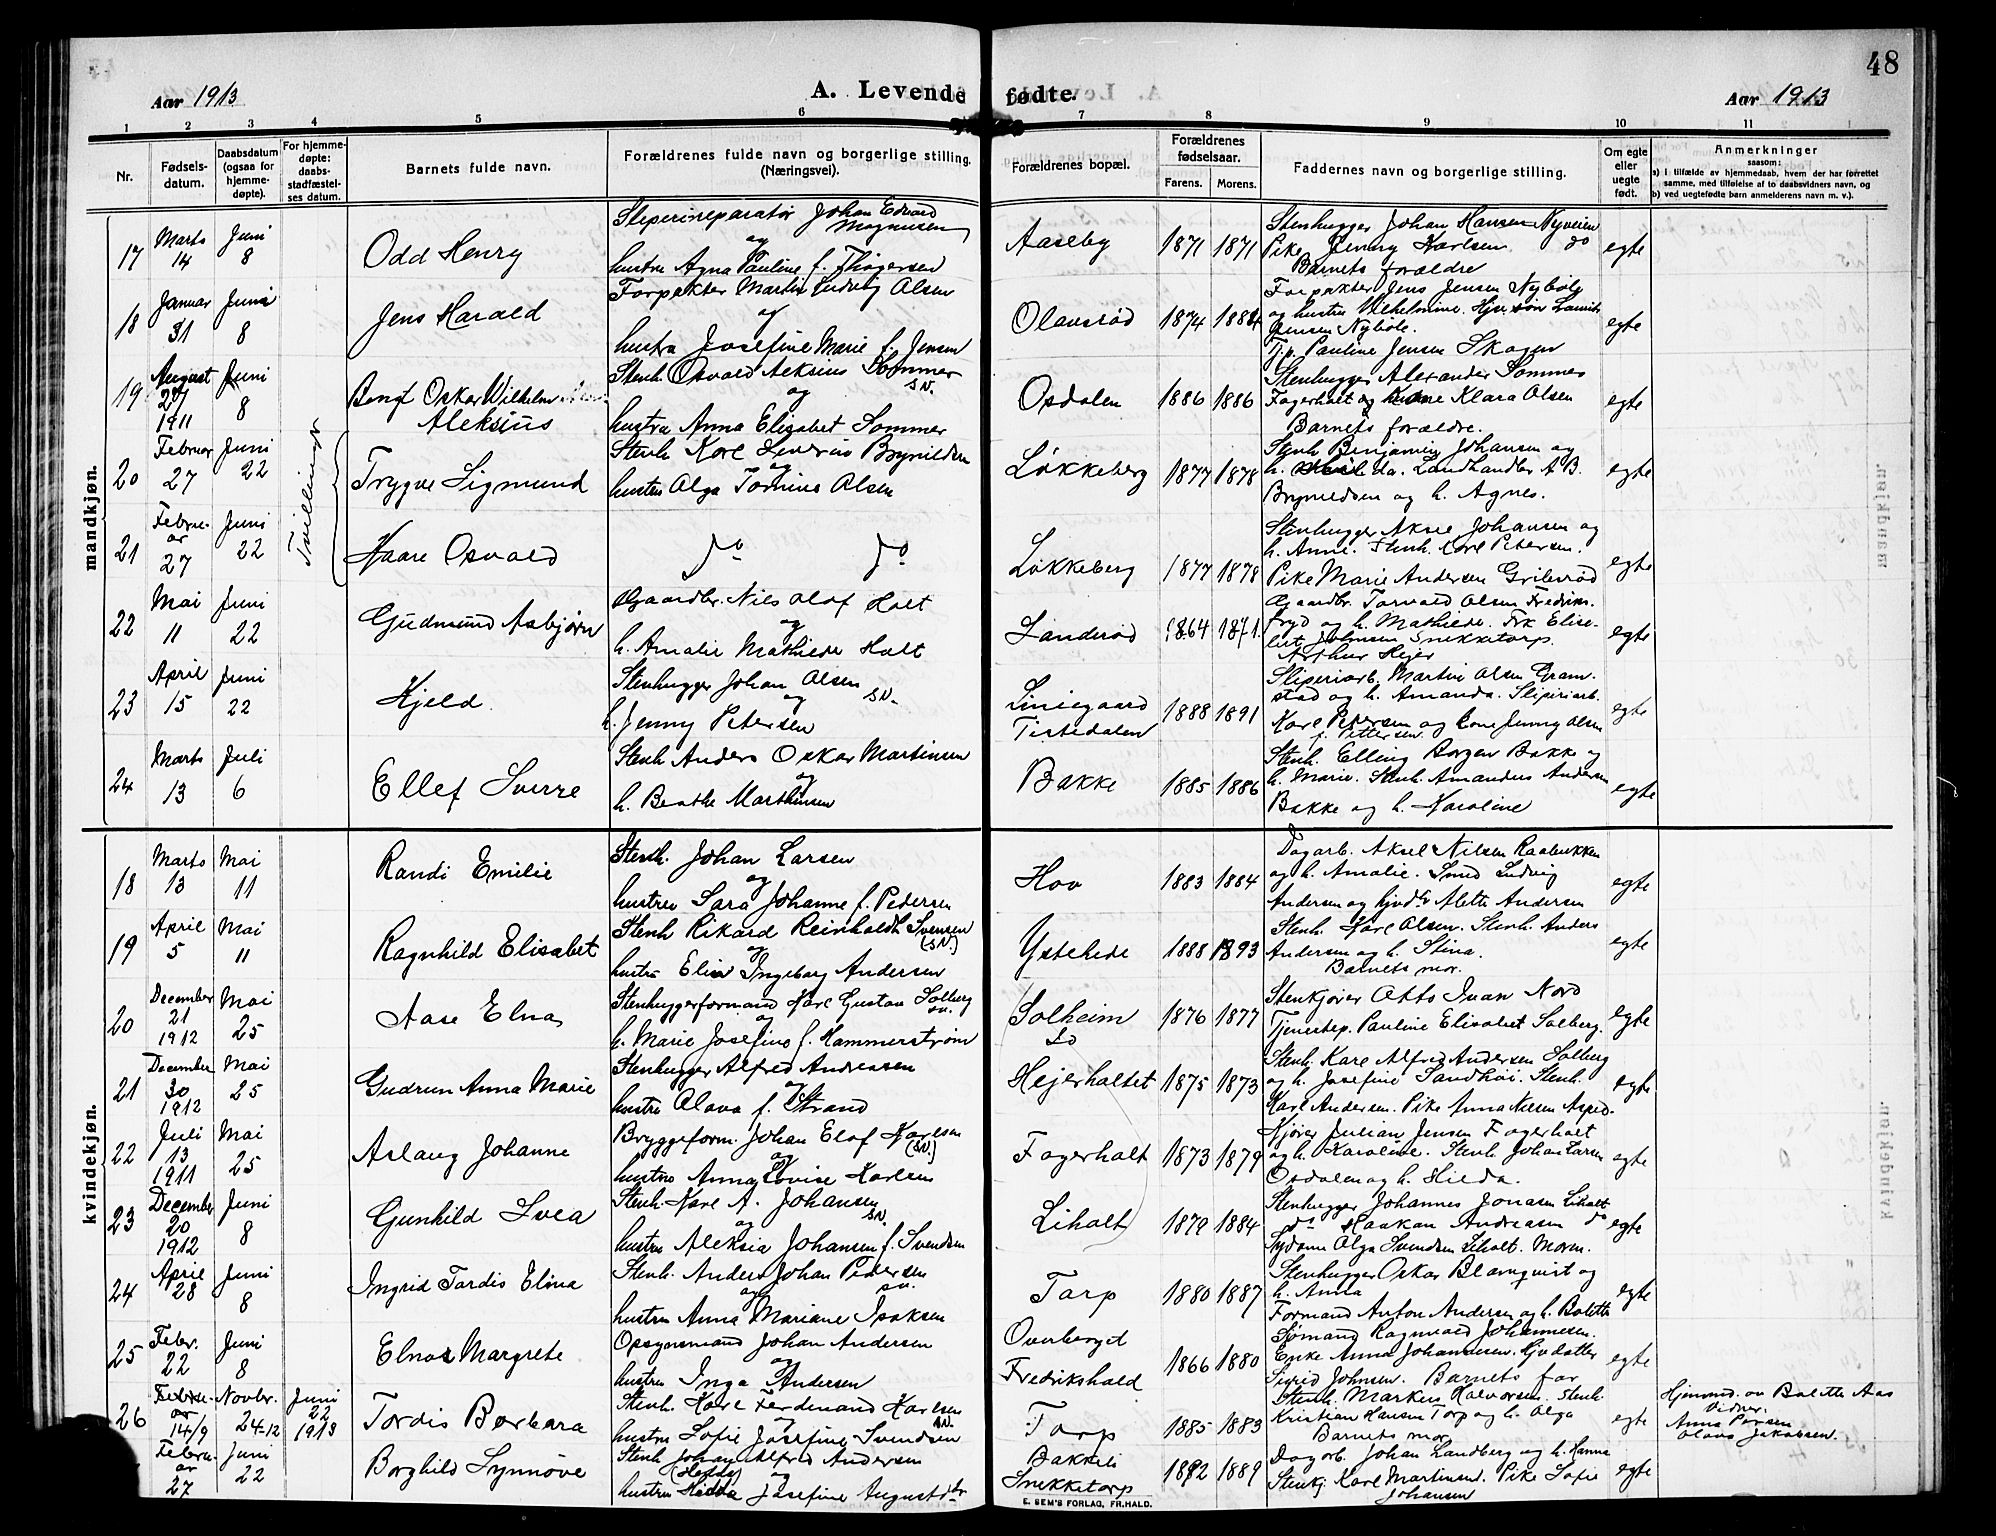 48
Aar 1913
A. Levende fødte.
Aar 1913
1 2 3 4 5 6 7 8 9 10 11
Nr.
Fødsels-
datum.
Daabsdatum
(ogsaa for
hjemme-
døpte).
For hjemme-
døpte:
daabs-
stadfæstel-
ses datum.
Barnets fulde navn.
Forældrenes fulde navn og borgerlige stilling.
(Næringsvei).
Forældrenes bopæl.
Forældrenes
fødselsaar.
Farens. Morens.
Faddernes navn og borgerlige stilling.
Om egte
eller
uegte
født.
Anmerkninger
saasom:
a) I tilfælde av hjemmedaab, hvem der har forrettet
samme, med tilføielse af to daabsvidners navn, og
b) ved uegtefødte barn anmelderens navn m. v.).
mandkjøn.
17
Marts
14
Juni
8
Odd Henry
Sliperireparatør Johan Edvard
Magnusen
og
hustru Agna Pauline f. Thøgersen
Aaseby
1871 1871
Stenhugger Johan Hansen Nyveien
Pike Jenny Karlsen do
Barnets forældre
egte
18
Januar
31
Juni
8
Jens Harald
Forpakter Martin Ludvig Olsen
og
hustru Josefine Marie f. Jensen
Olavsrød
1874 1884
Forpakter Jens Jensen Nybøle
og hustru Vilhelmine. Hjv. søn
Jensen Nybøle.
Tj.p. Pauline Jensen Skogen
egte
19
August
27
1911
Juni
8
Bengt Oskar Wilhelm
Aleksius
Stenh. Osvald Aleksius Sommer
s.v.
og
hustru Anna Elisabet Sommer
Osdalen
1886 1886
Stenhugger Alexander Sommer
Fagerholt og Kone Klara Olsen
Barnets forældre.
egte
Tvillinger
20
Februar
27
Juni
22
Trygve Sigmund
Stenh. Karl Severin Brynildsen
og
hustru Olga Tomine Olsen
Løkkeberg
1877 1878
Stenh. Benjamin Johansen og
h. Landhandler A. B.
Brynildsen og h. Agnes.
egte
21
Febru-
ar
27
Juni
22
Haare Osvald
do do
Løkkeberg
1877 1878
Stenhugger Aksel Johansen og
h. Anne. Stenh. Karl Petersen.
Pike Marie Andersen Grilesrød
egte
22
Mai
11
Juni
22
Gudmund Asbjørn
Gaardbr. Nils Olaf Holt
og
h. Amalie Mathilde Holt
Landerød
1864 1871.
Gaardbr. Torvald Olsen Fredriks-
fryd og h. Mathilde. Frk Elise-
bet Johnsen Snekketorp.
Arthur Hejer
egte
23
April
15
Juni
22
Kjeld.
Stenhugger Johan Olsen
og s.v.
h. Jenny Petersen
Liniegaard
Tistedalen
1888 1891
Sliperiarb. Martin Olsen Gram-
stad og h. Amanda. Sliperiarb.
Karl Petersen og Kone Jenny Olsen
f. Pettersen
egte
24
Marts
13
Juli
6
Ellef Sverre
Stenh. Anders Oskar Martinsen
og
h. Beathe Marthinsen
Bakke
1885 1886
Stenh. Elling Borgen Bakke og
h. Marie. Stenh. Amandus Andersen
Bakke og h. Karoline
egte
kvindekjøn.
18
Marts
13
Mai
11
Randi Emilie
Stenh. Johan Larsen
og
hustru Sara Johanne f. Pedersen
Hov
1883 1884
Dagarb. Aksel Nilsen Raabukken
og h. Amalie. Smed Ludvig
Andersen og hjvdtr Alette Andersen
egte
19
April
5
Mai
11
Ragnhild Elisabet
Stenh. Rikard Reinholdt Svensen
(s.v.)
og
hustru Elin Ingeborg Andersen
Ystehede
1888 1893
Stenh. Karl Olsen. Stenh. Anders
Andersen og h. Stina.
Barnets mor.
egte
20
December
21
1912
Mai
25
Aase Elna
Stenhuggerformand Karl Gustav Solberg
s.v.
og
h. Marie Josefine f. Hammerstrøm
Solheim
Lo
1876 1877
Stenkjører Otto Ivan Nord
Tjenestep. Pauline Elisabet Solberg.
egte
21
December
30
1912
Mai
25
Gudrun Anna Marie
Stenhugger Alfred Andreasen
og
hustru Olava f. Strand
Hejerholtet
1875 1873
Stenh. Karl Alfred Andersen Solberg
og h. Josefine Sandhøi. Stenh.
Karl Andersen. Pike Anna Nilsen Asped.
egte
22
Juli
13
1911
Mai
25
Aslaug Johanne
Bryggeform. Johan Elof Karlsen
(s.v.)
og
hustru Anna Lovise Karlsen
Fagerholt
1873 1879
Kjører Julian Jensen Fagerholt
og h. Karoline. Stenh. Johan Larsen
Osdalen og h. Hilda.
egte
23
December
20
1912
Juni
8
Gunhild Svea
Stenh. Karl A. Johansen
s.v.
og
hustru Aleksia Johansen f. Svendsen
Liholt
1879 1884
Stenhugger Johannes Jonasen Liholt
do Haakan Andreasen do
Sydame Olga Svendsen Liholt. Moren.
egte
24
April
28
Juni
8
Ingrid Tordis Elina
Stenh. Anders Johan Pedersen
s.v.
og
hustru Anna Mariane Isaksen
Torp
1880 1887
Stenhugger Oskar Blomquist og
h. Anna
Formand Anton Andersen og h. Bolette
egte
25
Febr.
22
Juni
8
Elna Margrete
Opsynsmand Johan Andersen
og
hustru Inga Andersen
Fredrikshald
1866 1880
Sømand Ragnvald Johannesen.
Enke Anna Johannesen. Hjvdatter
Sigrid Johnsen. Barnets far
egte
26
Febru-
ar
14/9
Novbr.
24-12
Juni
22
1913
Tordis Barbara
Stenh. Karl Ferdinand Karlsen
s.v.
og
hustru Sofie Josefine Svendsen
Torp
1885 1883
Stenh. Markus Halvorsen. Stenh.
Kristian Hansen Torp og h. Olga
Barnets mor
egte
Hjemmed. av Bolette Aas
Vidner.
Anna Persen
Olava Jakobsen.
Febru-
ar
27
Juni
22
Borghild Synnøve
Stenh Johan Alfred Andersen
(Hedda) og
hustru Hilda Josefine Augustdtr
Bakkeli
Snekketorp
1882 1889
Dagarb. Johan Landberg og h. Hanna
Stenkj. Karl Martinsen. Pike Sofie
Johansen
egte
E. SEM'S FORLAG, FR.HALD.